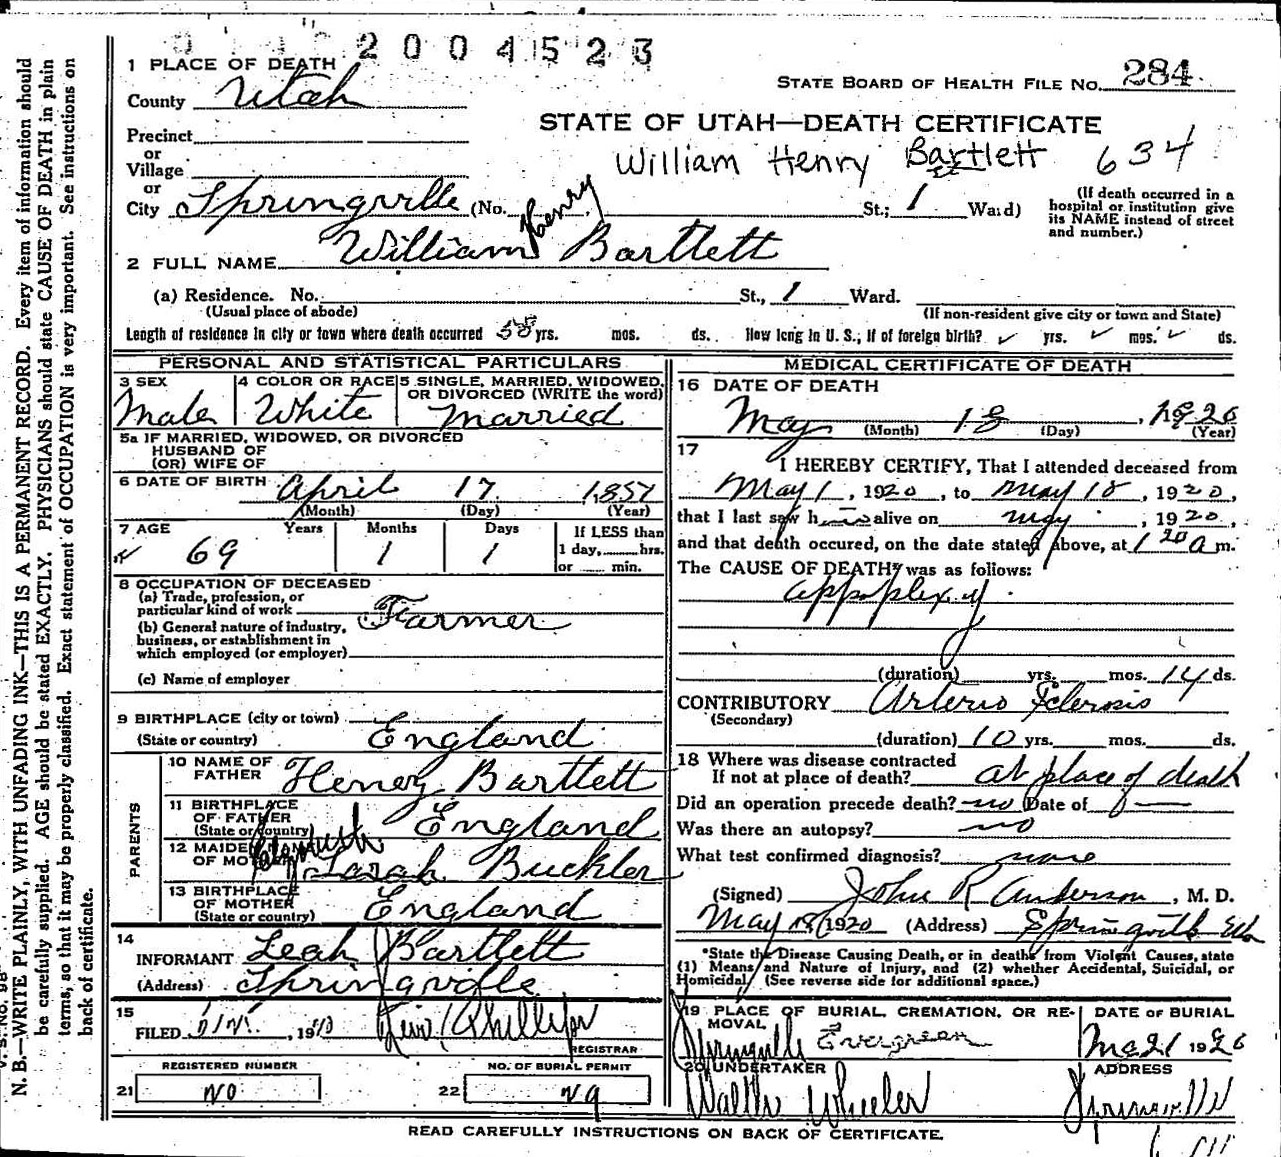 2004523
1 PLACE OF DEATH
STATE BOARD OF HEALTH FILE NO. 284
County Utah
STATE OF UTAH—DEATH CERTIFICATE
Precinct
William Henry Bartlett 634
or
Village
or
City Springville (No. St.; 1 Ward)
(If death occurred in a hospital or institution give its NAME instead of street and number.)
Henry
2 FULL NAME William Bartlett
(a) Residence. No. St., 1 Ward.
(Usual place of abode) (If non-resident give city or town and State)
Length of residence in city or town where death occurred yrs. mos. ds. How long in U. S.; if of foreign birth? yrs. mos. ds.
PERSONAL AND STATISTICAL PARTICULARS
3 SEX
Male
4 COLOR OR RACE
White
5 SINGLE, MARRIED, WIDOWED, OR DIVORCED (WRITE the word)
Married
5a IF MARRIED, WIDOWED, OR DIVORCED
HUSBAND OF
(OR) WIFE OF
6 DATE OF BIRTH April 17 1851
(Month) (Day) (Year)
7 AGE Years Months Days If LESS than
69 1 1 1 day, hrs.
or min.
8 OCCUPATION OF DECEASED
(a) Trade, profession, or
particular kind of work Farmer
(b) General nature of industry,
business, or establishment in
which employed (or employer)
(c) Name of employer
9 BIRTHPLACE (city or town)
(State or country) England
PARENTS
10 NAME OF FATHER Henery Bartlett
11 BIRTHPLACE OF FATHER
(State or country) England
12 MAIDEN NAME OF MOTHER Sarah Buckler
13 BIRTHPLACE OF MOTHER
(State or country) England
14
INFORMANT Leah Bartlett
(Address) Springville
15
FILED , 19 Phillips
REGISTRAR
REGISTERED NUMBER
21 NO
NO. OF BURIAL PERMIT
22 N9
MEDICAL CERTIFICATE OF DEATH
16 DATE OF DEATH
May 18, 1920
(Month) (Day) (Year)
17
I HEREBY CERTIFY, That I attended deceased from
May 1, 1920, to May 18, 1920,
that I last saw him alive on May, 1920,
and that death occured, on the date stated above, at 1 20 a m.
The CAUSE OF DEATH* was as follows:
appoplexy
(duration) yrs. mos. 14 ds.
CONTRIBUTORY Arterio Sclerosis
(Secondary)
(duration) 10 yrs. mos. ds.
18 Where was disease contracted
If not at place of death? at place of death
Did an operation precede death? no Date of
Was there an autopsy? no
What test confirmed diagnosis? none
(Signed) John R Anderson, M. D.
May 18 1920 (Address) Springville
*State the Disease Causing Death, or in deaths from Violent Causes, state
(1) Means and Nature of Injury, and (2) whether Accidental, Suicidal, or
Homicidal. (See reverse side for additional space.)
19 PLACE OF BURIAL, CREMATION, OR RE-
MOVAL
Springville Evergreen
DATE OF BURIAL
21 1920
20 UNDERTAKER
Walter Wheeler
ADDRESS
READ CAREFULLY INSTRUCTIONS ON BACK OF CERTIFICATE.
N. B.—WRITE PLAINLY, WITH UNFADING INK—THIS IS A PERMANENT RECORD. Every item of information should
be carefully supplied. AGE should be stated EXACTLY. PHYSICIANS should state CAUSE OF DEATH in plain
terms, so that it may be properly classified. Exact statement of OCCUPATION is very important. See instructions on
back of certificate.